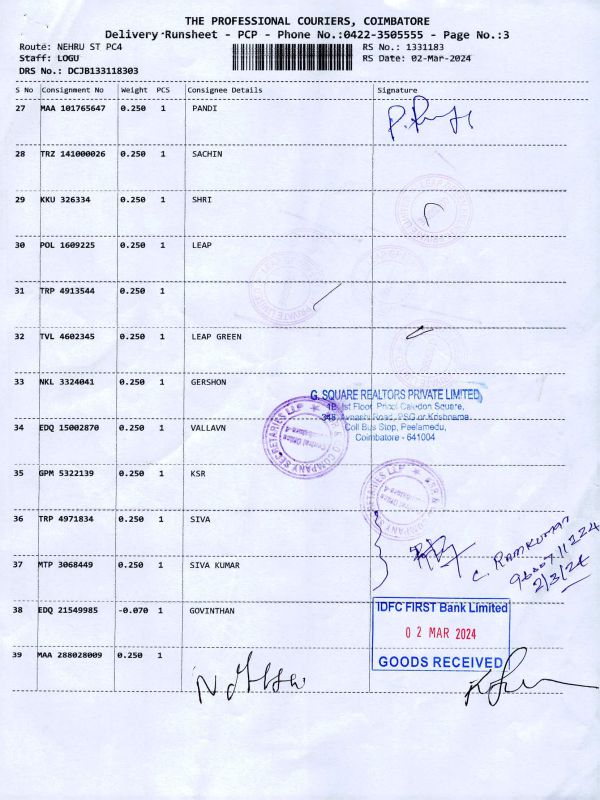 THE PROFESSIONAL COURIERS, COIMBATORE
Delivery Runsheet - PCP - Phone No.:0422-3505555 - Page No.:3
Route: NEHRU ST PC4 RS No.: 1331183
Staff: LOGU RS Date: 02-Mar-2024
DRS No.: DCJB133118303
S No Consignment No Weight PCS Consignee Details Signature
27 MAA 101765647 0.250 1 PANDI
28 TRZ 141000026 0.250 1 SACHIN
29 KKU 326334 0.250 1 SHRI
30 POL 1609225 0.250 1 LEAP
31 TRP 4913544 0.250 1
32 TVL 4602345 0.250 1 LEAP GREEN
33 NKL 3324041 0.250 1 GERSHON
G. SQUARE REALTORS PRIVATE LIMITED
1st Floor, Caledon Square,
Avinashi Road, PSG
Coll Bus Stop, Peelamedu,
Coimbatore - 641004
34 EDQ 15002870 0.250 1 VALLAVN
COMPANY SECRETARIES LLP
35 GPM 5322139 0.250 1 KSR
36 TRP 4971834 0.250 1 SIVA
C. RAMKUMAR
2/3/24
37 MTP 3068449 0.250 1 SIVA KUMAR
38 EDQ 21549985 -0.070 1 GOVINTHAN
IDFC FIRST Bank Limited
02 MAR 2024
GOODS RECEIVED
39 MAA 288028009 0.250 1